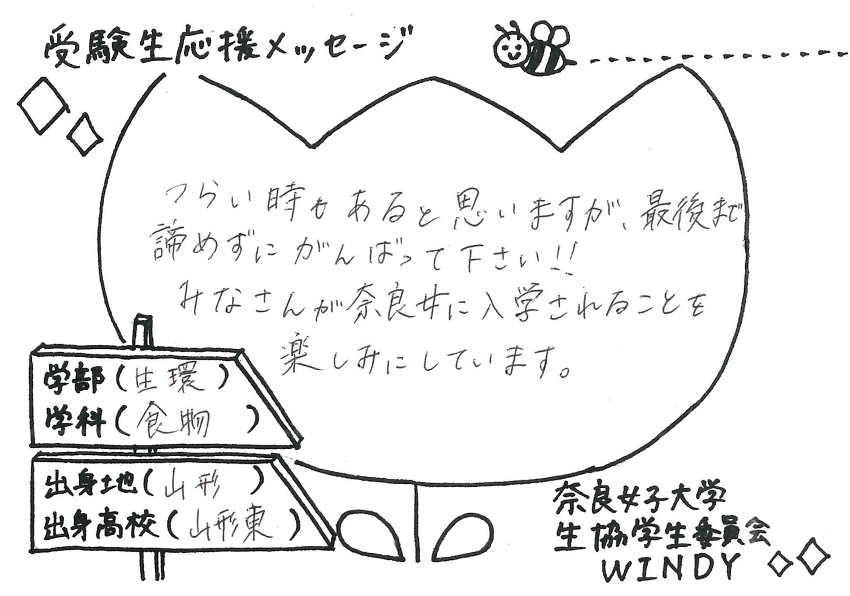 受験生応援メッセージ
つらい時もあると思いますが、最後まで
諦めずにがんばって下さい!!
みなさんが奈良女に入学されることを
楽しみにしています。
学部(生環)
学科(食物)
出身地(山形)
出身高校(山形東)
奈良女子大学
生協学生委員会
WINDY